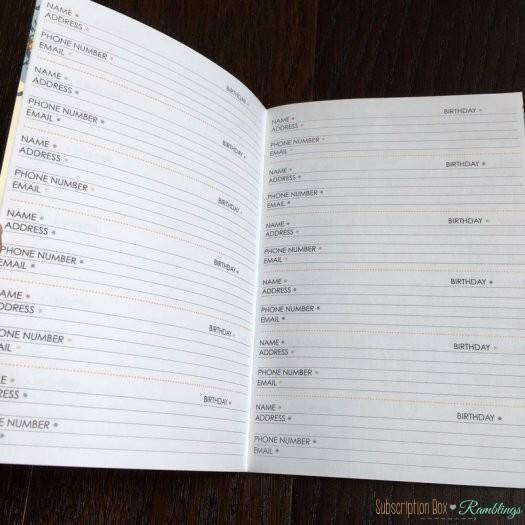 NAME * BIRTHDAY *
ADDRESS *
PHONE NUMBER *
EMAIL *
NAME * BIRTHDAY *
ADDRESS *
PHONE NUMBER *
EMAIL *
NAME * BIRTHDAY *
ADDRESS *
PHONE NUMBER *
EMAIL *
NAME * BIRTHDAY *
ADDRESS *
PHONE NUMBER *
EMAIL *
NAME * BIRTHDAY *
ADDRESS *
ONE NUMBER *
AIL *
AME * BIRTHDAY *
DRESS *
NE NUMBER *
AIL *
NAME * BIRTHDAY *
ADDRESS *
PHONE NUMBER *
EMAIL *
NAME * BIRTHDAY *
ADDRESS *
PHONE NUMBER *
EMAIL *
NAME * BIRTHDAY *
ADDRESS *
PHONE NUMBER *
EMAIL *
NAME * BIRTHDAY *
ADDRESS *
PHONE NUMBER *
EMAIL *
NAME * BIRTHDAY *
ADDRESS *
PHONE NUMBER *
EMAIL *
NAME * BIRTHDAY *
ADDRESS *
PHONE NUMBER *
EMAIL *
Subscription Box ♥ Ramblings